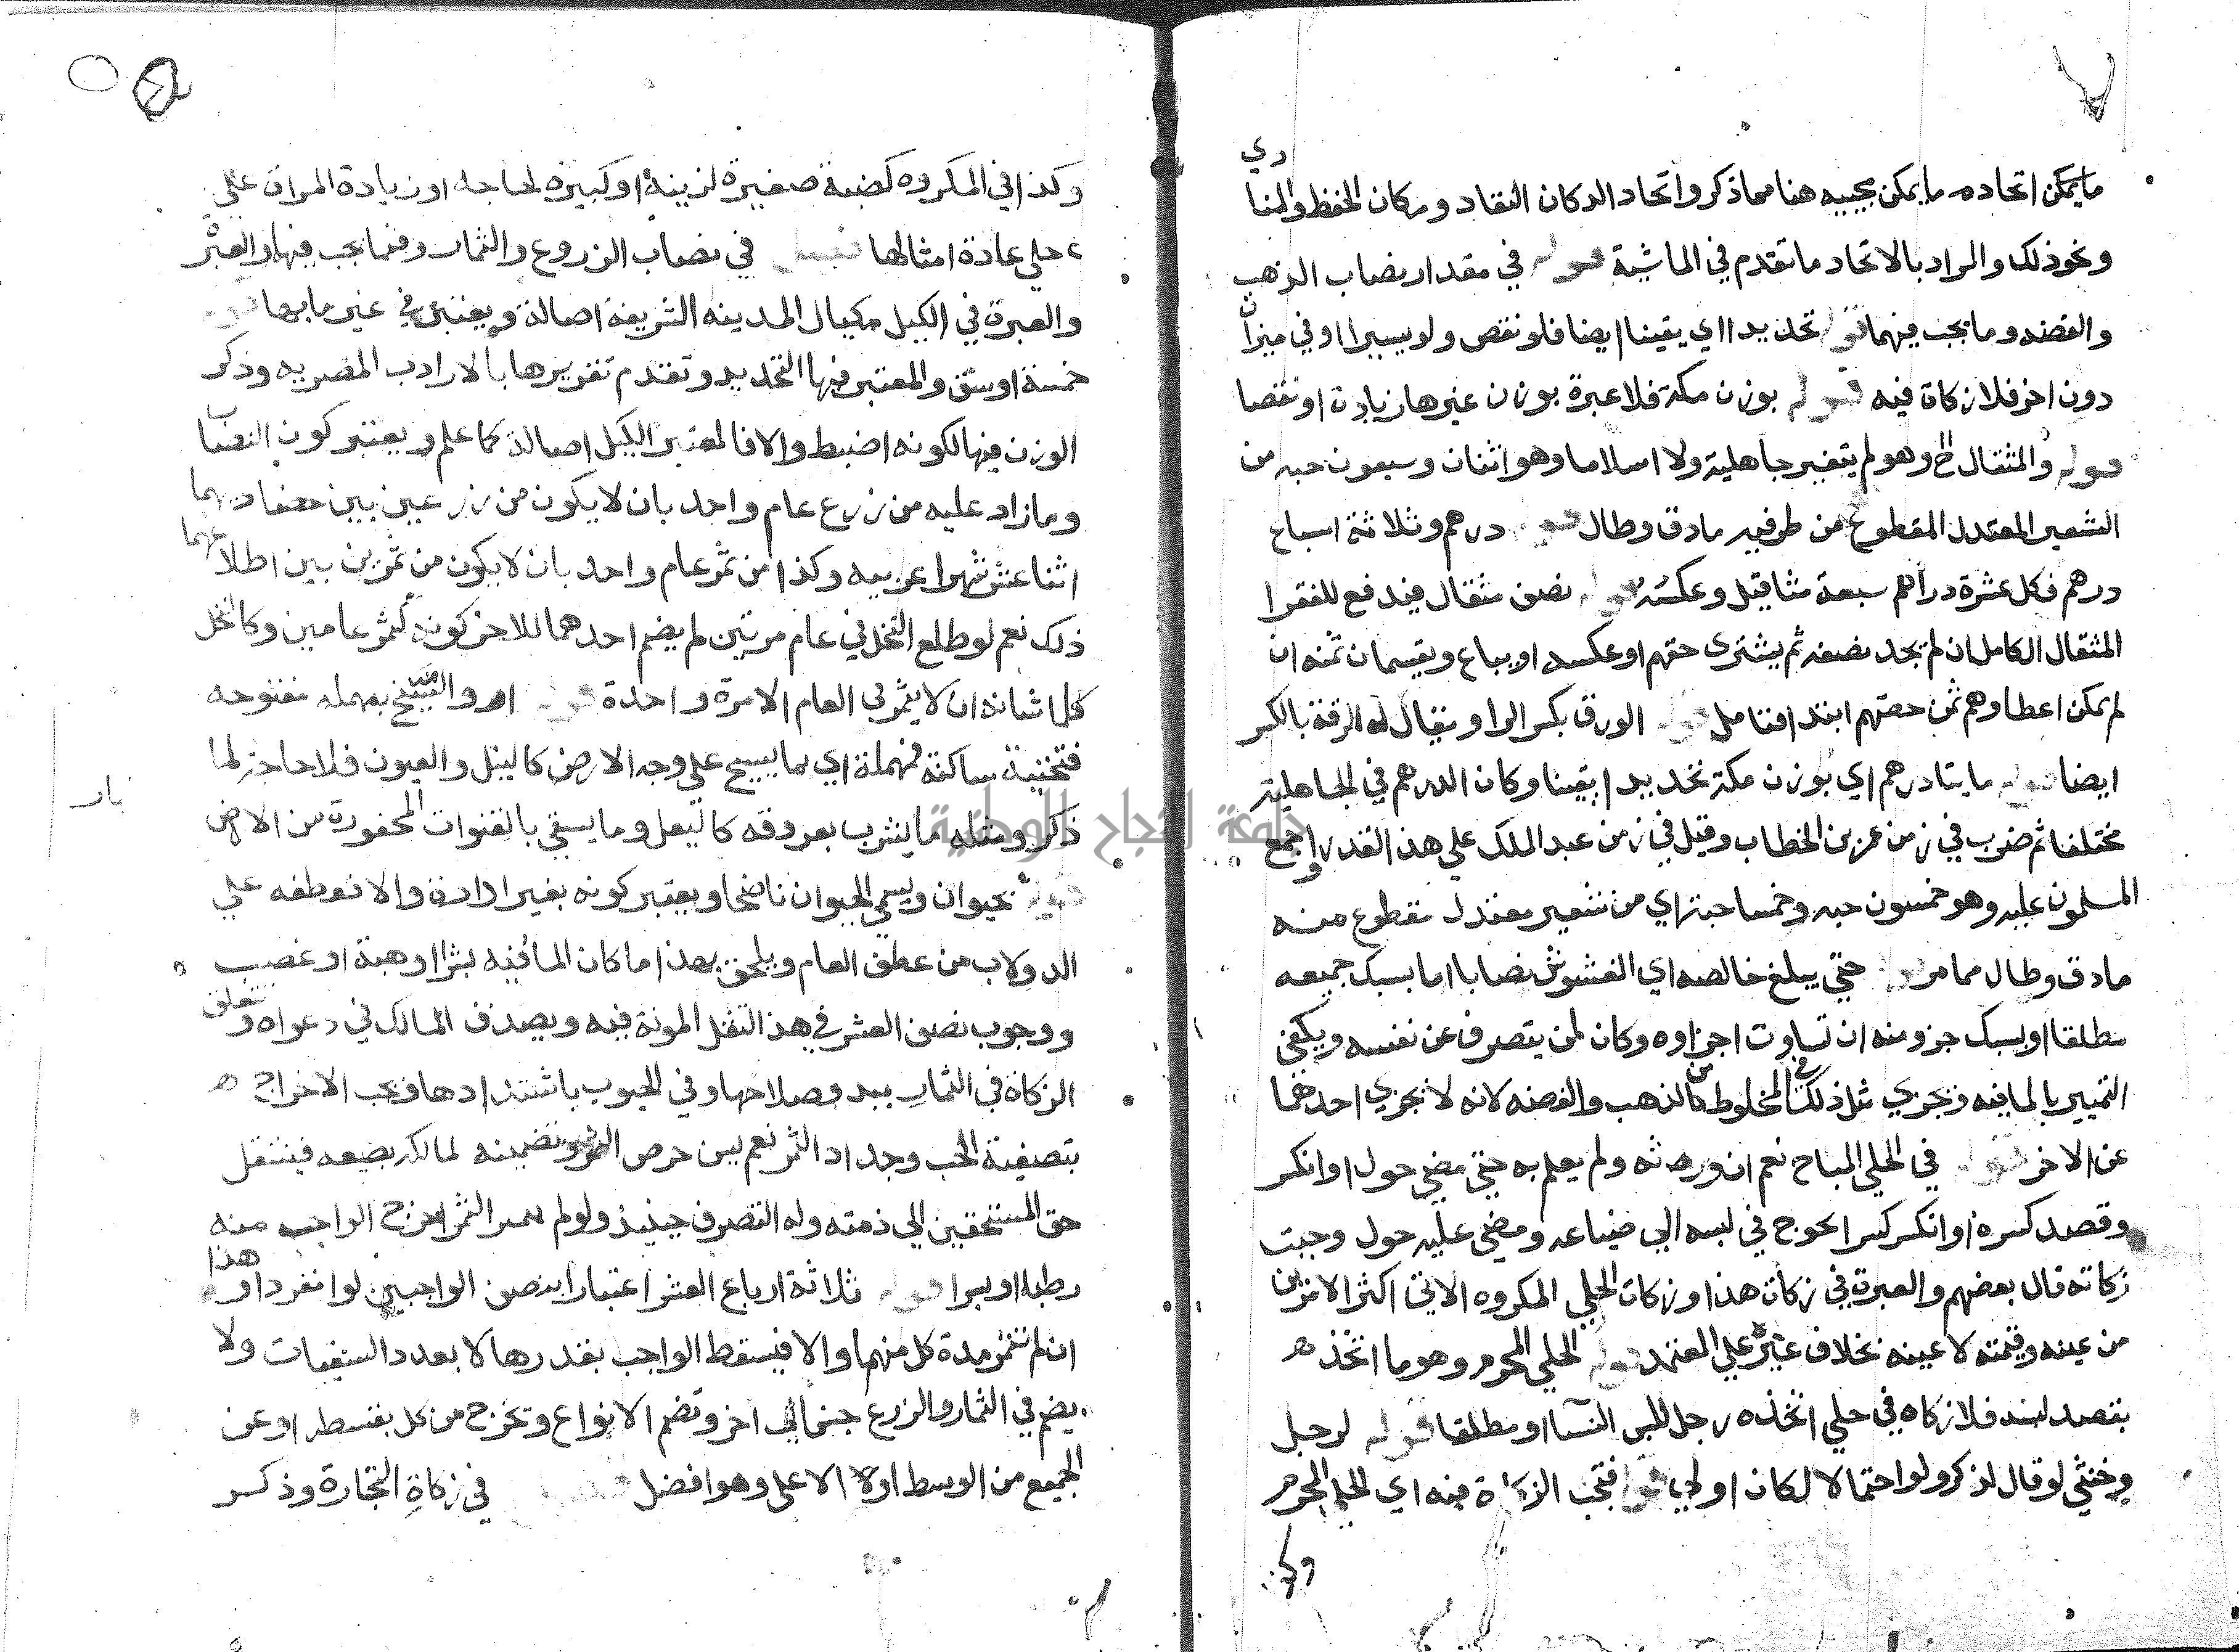 ما يمكن اتحاده ما يمكن مجيبه هنا مما ذكر واتحاد الدكان النقاد ومكان الحفظ والمنا
دي
ونحو ذلك والمراد بالاتحاد ما تقدم في الماشية قوله في مقدار نصاب الذهب
والفضه وما يجب فيهما قوله تحديدا اي يقينا ايضا فلو نقص ولو يسيرا او في ميزان
دون اخر فلا زكاة فيه قوله بوزن مكة فلا عبرة بوزن غيرها زيادة او نقصا
قوله والمثقال الخ وهو لم يتغير جاهلية ولا اسلاما وهو اثنان وسبعون حبه من
الشعير المعتدل المقطوع من طرفيه ما دق وطال قوله درهم وثلاثة اسباع
درهم فكل عشرة دراهم سبعة مثاقيل وعكسه قوله نصف مثقال فيدفع للفقرا
المثقال الكامل ان لم يجد نصفه ثم يشتري حقهم او عكسه او يباع ويقسمان ثمنه ان
لم يمكن اعطاوهم ثمن حصتهم ابتدا فتامل قوله الورق بكسر الرا ويقال له الرقة بالكسر
ايضا قوله مايتا درهم اي بوزن مكة تحديدا يقينا وكان الدرهم في الجاهلية
مختلفا ثم ضرب في زمن عمر بن الخطاب وقيل في زمن عبد الملك علي هذا القدر واجمع
المسلمون عليه وهو خمسون حبه وخمسا حبة اي من شعير معتدل مقطوع منه
ما دق وطال مما مر قوله حتي يبلغ خالصه اي المغشوش نصابا اما بسبك جميعه
مطلقا او بسبك جزو منه ان تساوت اجزاوه وكان لمن يتصرف عن نفسه ويكفي
التمييز بالما فيه ويجزي مثل ذلك في المخلوط من الذهب والفضه لانه لا يجزي احدهما
عن الاخر قوله في الحلي المباح نعم ان ورثه ولم يعلم به حتي مضي حول او انكسر
وقصد كسره او انكسر كسرا يحوج في لبسه الي صياغه ومضي عليه حول وجبت
زكاته قال بعضهم والعبرة في زكاة هذا وزكاة الحلي المكروه الاتي اكثر الامرين
من عينه وقيمته لا عينه بخلاف غيره علي المعتمد قوله الحلي المحرم وهو ما اتخذ
بقصد لبسه فلا زكاه في حلي اتخذه رجل للبس النسا او مطلقا قوله لرجل
وخنثي لو قال لذكر ولو احتمالا لكان اولي قوله فتجب الزكاة فيه اي الحلي المحرم
وكذا
وكذا في المكروه كضبة صغيرة لزينة او كبيرة لحاجه او زيادة المراة علي
حلي عادة امثالها فصل في نصاب الزروع والثمار وفيما يجب فيها والعشر
والعبرة في الكيل بمكيال المدينه الشريفة اصالة ويعتبر في غير ما بها قوله
خمسة اوسق والمعتبر فيها التحديد وتقدم تقريرها بالارادب المصريه وذكر
الوزن فيها لكونه اضبط والا فالمعتبر الكيل اصالة كما علم ويعتبر كون النصاب
وما زاد عليه من زرع عام واحد بان لا يكون من زرعين بين حصاديهما
اثنا عشر شهرا عربيه وكذا من ثمر عام واحد بان لا يكون من ثمرين بين اطلاعهما
ذلك نعم لو طلع النخل في عام مرتين لم يضم احدهما للاخر كونه كثمر عامين وكالنخل
كل ما شانه ان لا يثمر في العام الا مرة واحدة قوله او السيح بمهمله مفتوحه
فتحتية ساكنة فمهملة اي بما يسيح علي وجه الارض كالنيل والعيون فلا حاجة لما
ذكر ومثله ما يشرب بعروقه كالبعل وما يسقي بالقنوات المحفورة من الارض
قوله بحيوان ويسمي الحيوان ناضحا ويعتبر كونه بغير ادارة والا فعطفه علي
الدولاب من عطف العام ويلحق بهذا ما كان الما فيه بشرا او هبة او غصب
ووجوب نصف العشر في هذا لثقل المونة فيه ويصدق المالك في دعواه وتتعلق
الزكاة في الثمار ببدو صلاحها وفي الحبوب باشتدادها ويجب الاخراج
بتصفية الحب وجداد الثمر نعم يسن خرص الثمر وتضمينه لمالكه بصيغه فينتقل
حق المستحقين الي ذمته وله التصرف حينيذ ولو لم الثمر اخرج الواجب منه
رطبا او بسرا قوله ثلاثة ارباع العشر اعتبارا بنصف الواجبين لو انفردا وهذا
ان لم تتميز مدة كل منهما والا فيسقط الواجب بقدرها لا بعدد السقيات ولا
يضم في الثمار والزرع جنس الي اخر وتضم الانواع وتخرج من كل بقسطه او عن
الجميع من الوسط او الاعلي وهو افضل فصل في زكاة التجارة وذكر
جامعة النجاح الوطنية